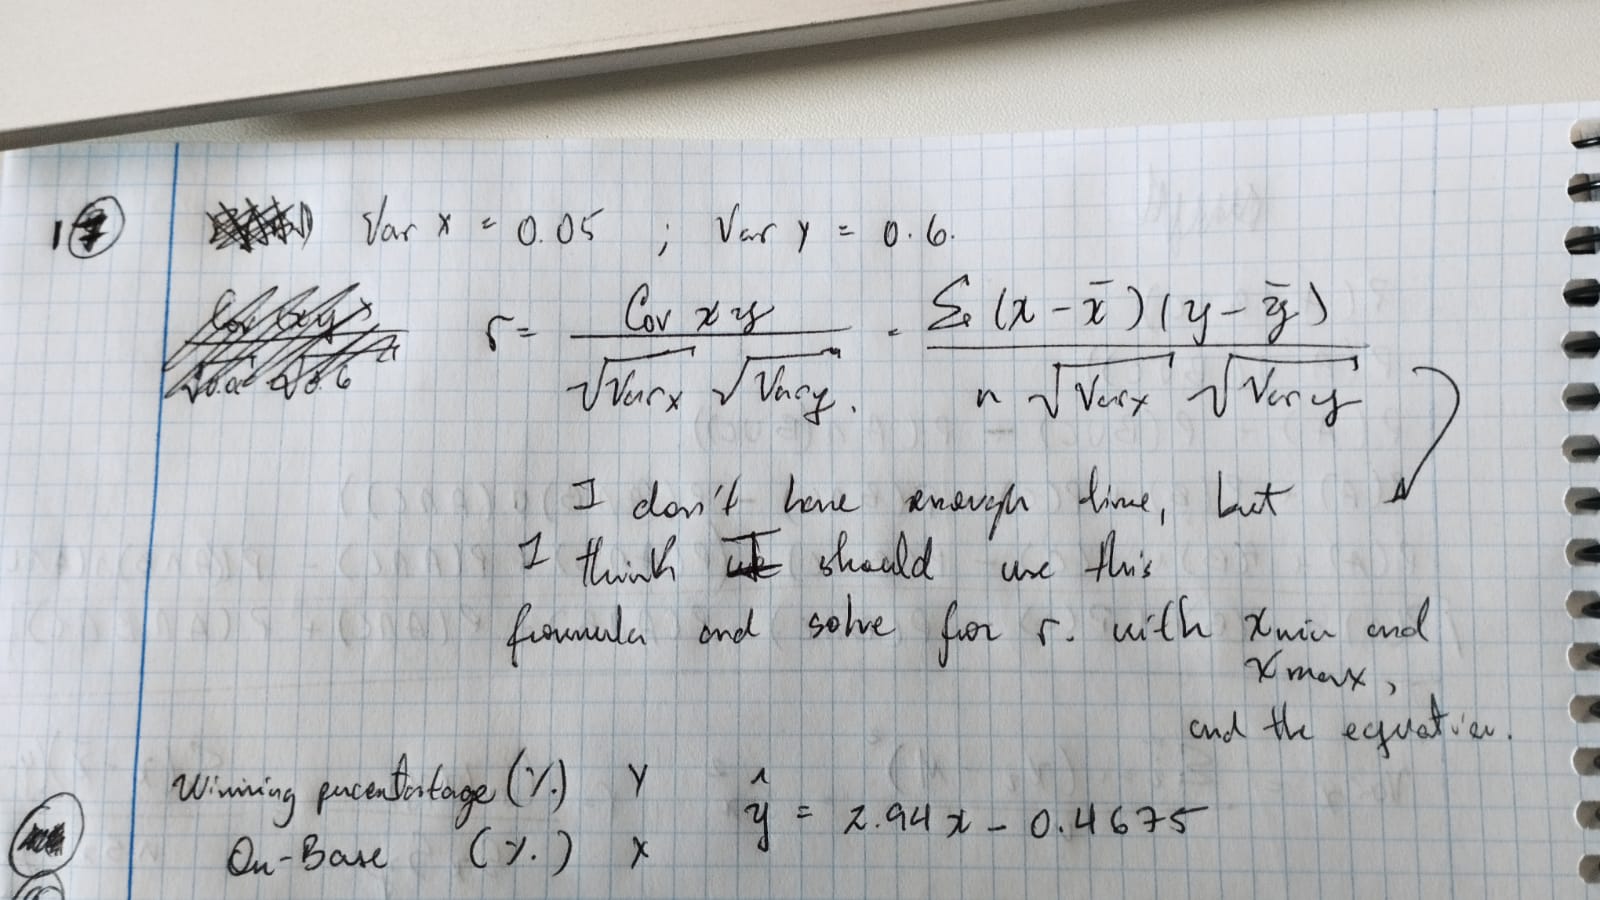 17 Var x = 0.05 ; Var y = 0.6.
r = Cov xy / √Var x √Var y . = Σ (x - x̄)(y - ȳ) / n √Var x √Var y
I don't have enough time, but
I think I should use this
formula and solve for r. with x min and
x max,
and the equation.
Winning percentatage (%) Y ŷ = 2.94x - 0.4675
On-Base (%.) X